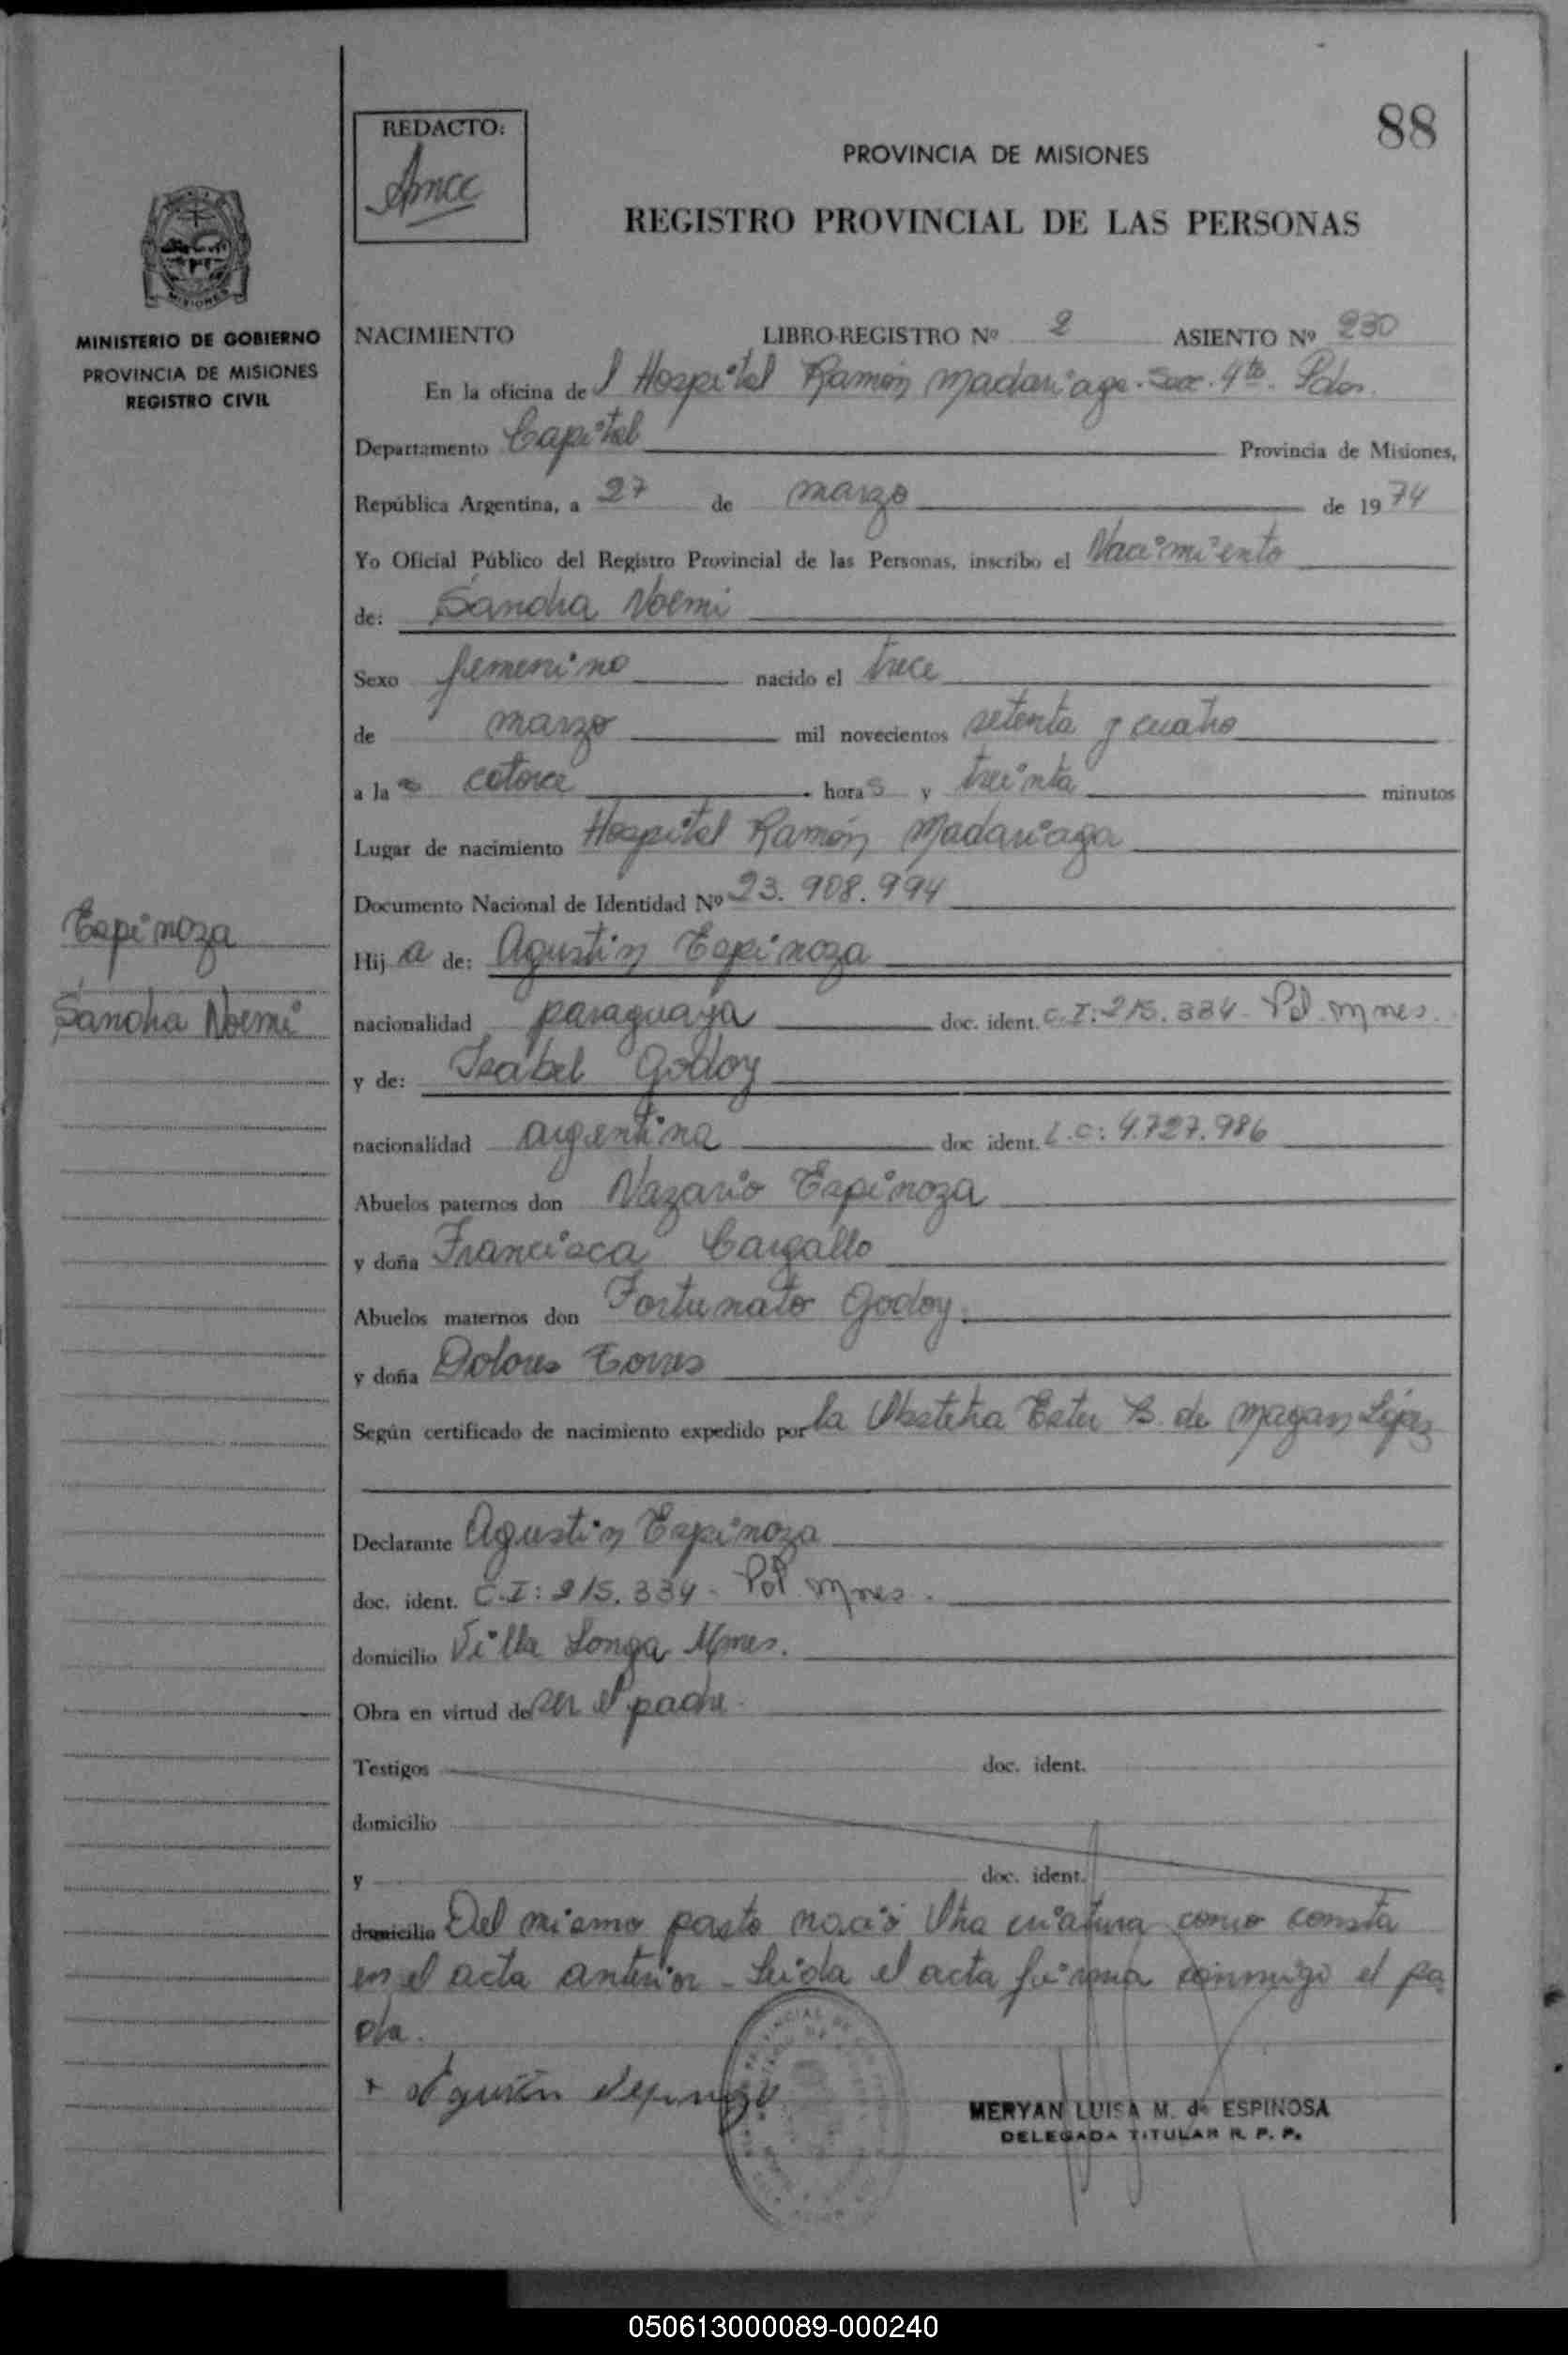 88
REDACTO:
Amcc
PROVINCIA DE MISIONES
REGISTRO PROVINCIAL DE LAS PERSONAS
MISIONES
MINISTERIO DE GOBIERNO
PROVINCIA DE MISIONES
REGISTRO CIVIL
NACIMIENTO LIBRO-REGISTRO Nº 2 ASIENTO Nº 230
En la oficina de l Hospital Ramón Madariaga. Secc. 4ta. Pdas.
Departamento Capital Provincia de Misiones,
República Argentina, a 27 de marzo de 1974
Yo Oficial Público del Registro Provincial de las Personas, inscribo el Nacimiento
de: Sandra Noemi
Sexo femenino nacido el trece
de marzo mil novecientos setenta y cuatro
a la s catorce horas y treinta minutos
Lugar de nacimiento Hospital Ramón Madariaga
Documento Nacional de Identidad Nº 23.908.994
Espinoza
Sandra Noemi
Hij a de: Agustin Espinoza
nacionalidad paraguaya doc. ident. C.I: 215.334 - Pol. Mnes.
y de: Isabel Godoy
nacionalidad argentina doc ident. L.C: 4.727.986
Abuelos paternos don Nazario Espinoza
y doña Francisca Cargallo
Abuelos maternos don Fortunato Godoy.
y doña Dolores Torres
Según certificado de nacimiento expedido por la Obstetra Ester B. de Magan López
Declarante Agustin Espinoza
doc. ident. C.I: 215.334 - Pol Mnes.
domicilio Villa Longa Mnes.
Obra en virtud de ser el padre.
Testigos doc. ident.
domicilio
y doc. ident.
domicilio Del mismo parto nació Otra criatura como consta
en el acta anterior - Leida el acta firma conmigo el pa
dre.
+ Agustin Espinoza
MERYAN LUISA M. de ESPINOSA
DELEGADA TITULAR R. P. P.
050613000089-000240